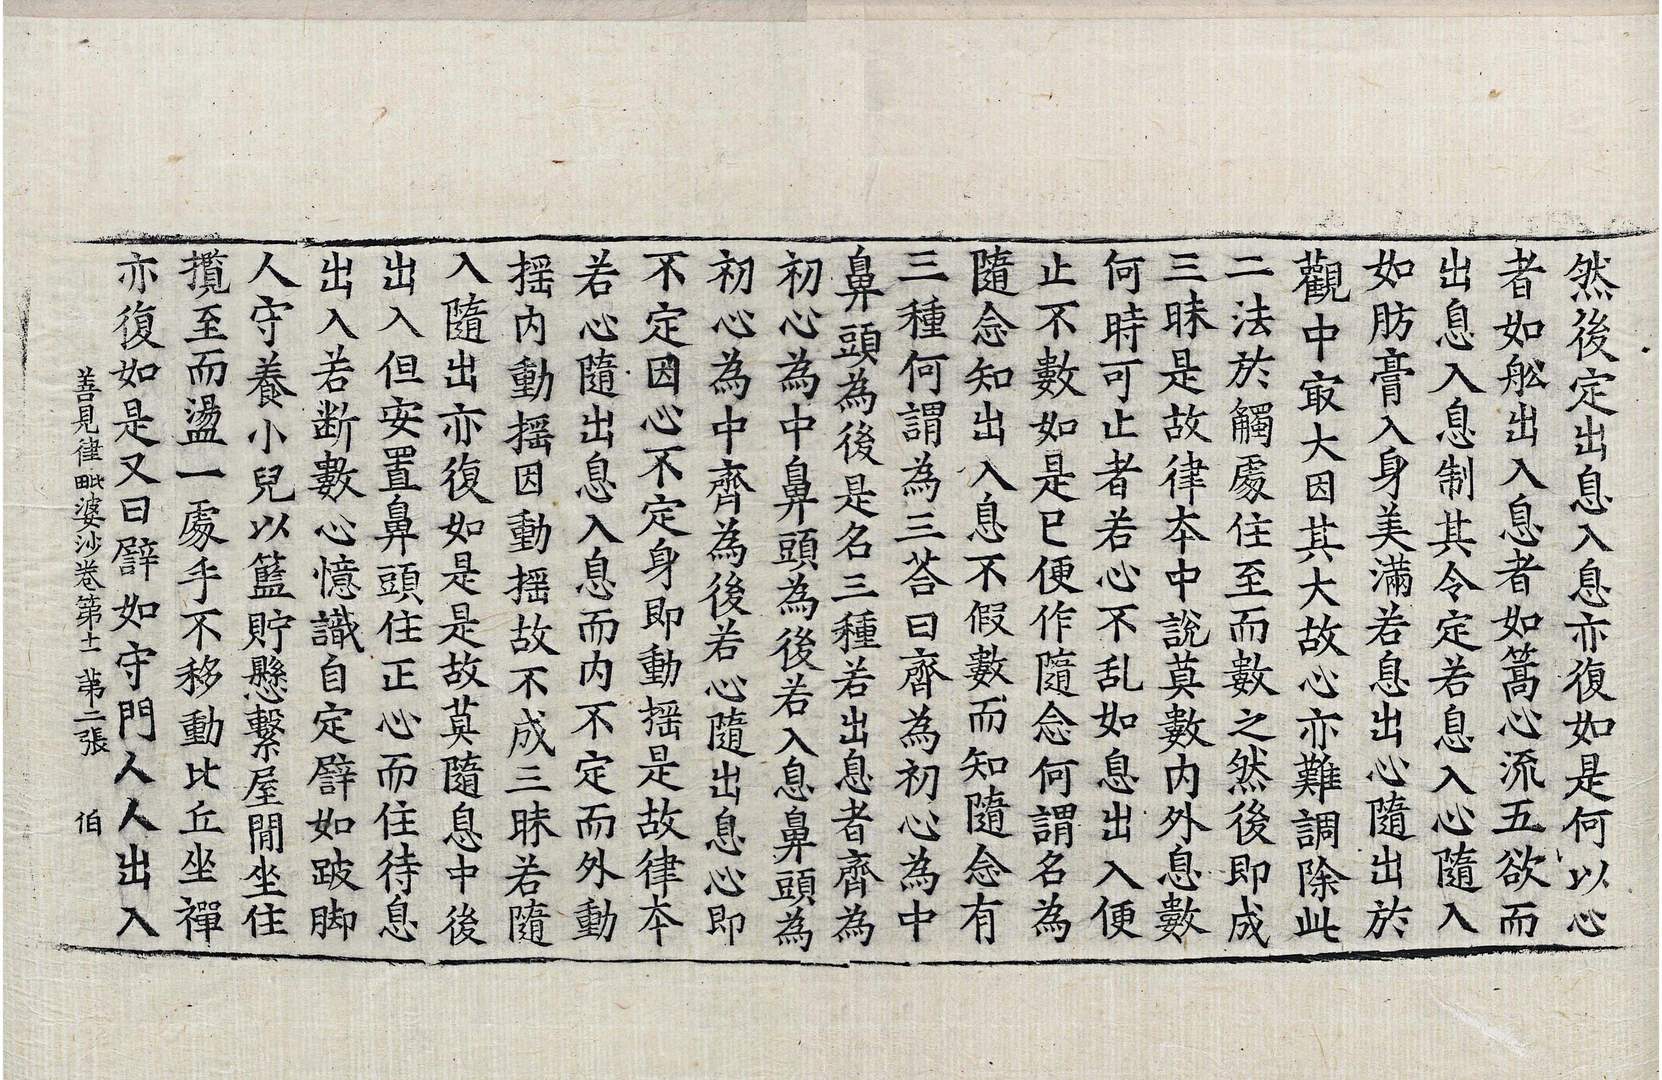 然後定出息入息亦復如是何以心
者如舩出入息者如篙心流五欲而
出息入息制其令定若息入心隨入
如肪膏入身美滿若息出心隨出於
觀中㝡大因其大故心亦難調除此
二法於觸處住至而數之然後即成
三昧是故律本中說莫數內外息數
何時可止者若心不乱如息出入便
止不數如是已便作隨念何謂名為
隨念知出入息不假數而知隨念有
三種何謂為三荅曰齊為初心為中
鼻頭為後是名三種若出息者齊為
初心為中鼻頭為後若入息鼻頭為
初心為中齊為後若心隨出息心即
不定因心不定身即動揺是故律本
若心隨出息入息而内不定而外動
揺内動揺因動揺故不成三昧若隨
入隨出亦復如是是故莫隨息中後
出入但安置鼻頭住正心而住待息
出入若断數心憶識自定譬如跛脚
人守養小兒以籃貯懸繫屋間坐住
攬至而盪一處手不移動比丘坐禪
亦復如是又曰譬如守門人人出入
善見律毗婆沙卷第十一 第二張 伯